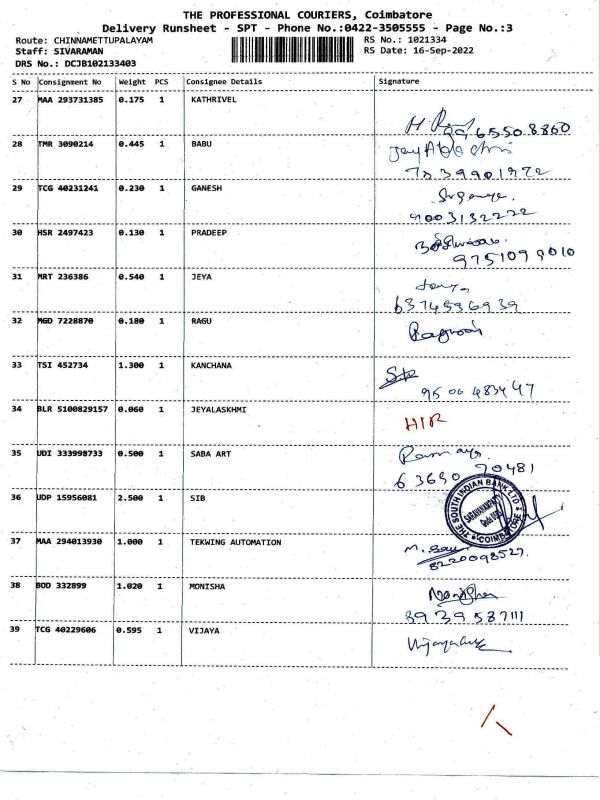 THE PROFESSIONAL COURIERS, Coimbatore
Delivery Runsheet - SPT - Phone No.:0422-3505555 - Page No.:3
Route: CHINNAMETTUPALAYAM
RS No.: 1021334
Staff: SIVARAMAN
RS Date: 16-Sep-2022
DRS No.: DCJB102133403
S No Consignment No Weight PCS Consignee Details Signature
27 MAA 293731385 0.175 1 KATHRIVEL
28 TMR 3090214 0.445 1 BABU
29 TCG 40231241 0.230 1 GANESH
9003132222
30 HSR 2497423 0.130 1 PRADEEP
9751099010
31 MRT 236386 0.540 1 JEYA
6374536939
32 MGD 7228870 0.180 1 RAGU
33 TSI 452734 1.300 1 KANCHANA
34 BLR 5100829157 0.060 1 JEYALASKHMI
35 UDI 333998733 0.500 1 SABA ART
63690 70481
36 UDP 15956081 2.500 1 SIB
THE SOUTH INDIAN BANK LTD
COIMBATORE
37 MAA 294013930 1.000 1 TEKWING AUTOMATION
8220098527
38 BOD 332899 1.020 1 MONISHA
8939587111
39 TCG 40229606 0.595 1 VIJAYA